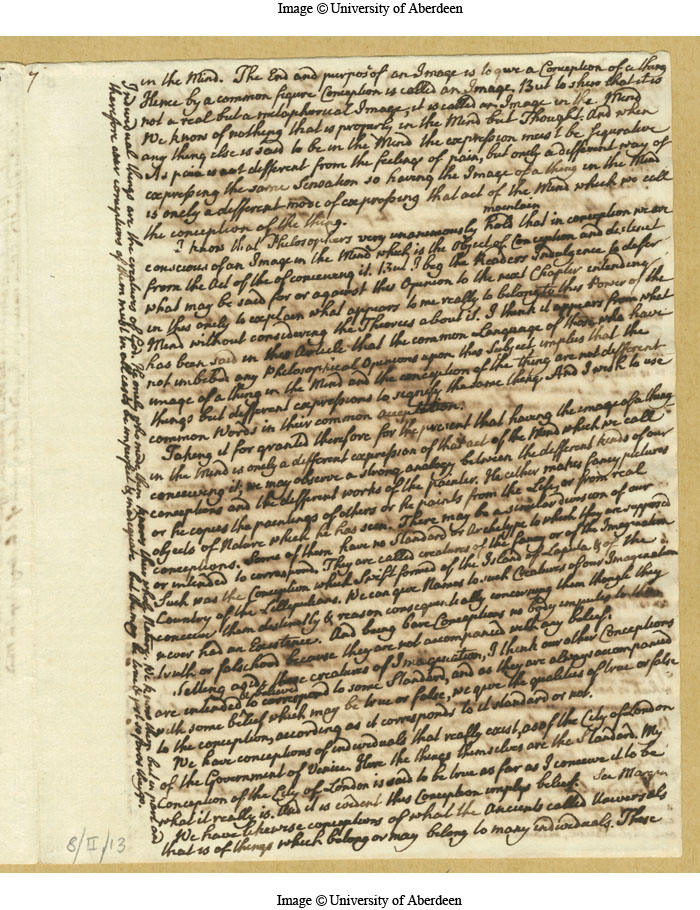 Image © University of Aberdeen
7
in the Mind. The End and purpose of an Image is to give a Conception of a thing
Hence by a common figure Conception is called an Image. But to shew that it is
not a real but a metaphorical Image, it is called an Image in the Mind
We know of nothing that is properly in the Mind but Thought. And when
any thing else is said to be in the Mind the expression must be figurative
As pain is not different from the feeling of pain, but onely a different way of
expressing the same Sensation so having the Image of a thing in the Mind
is onely a different mode of expressing that act of the Mind which we call
the conception of the thing.
maintain
I know that Philosophers very unanimously hold that in conception we are
conscious of an Image in the Mind which is the object of Conception and distinct
from the Act of the of conceiving it. But I beg the Readers Indulgence to defer
what may be said for or against this Opinion to the next Chapter intending
in this onely to explain what appears to me really to belong to this Power of the
Mind without considering the Theories about it. I think it appears from what
has been said in this Article that the common Language of those who have
not imbibed any Philosophical Opinions upon this Subject implies that the
image of a thing in the Mind and the conception of the thing are not different
things but different expressions to signify the same thing. And I wish to use
common Words in their common acceptation.
Taking it for granted therefore for the present that having the image of a thing
in the Mind is onely a different expression of that act of the Mind which we call
conceiving it; we may observe a strong analogy between the different kinds of our
conceptions and the different works of the painter. He either makes fancy pictures
or he copies the paintings of others or he paints from the Life, or from real
objects of Nature which he has seen. There may be a similar division of our
conceptions. Some of them have no Standard or Archetype to which they are supposed
or intended to correspond. They are called creatures of the fancy or of the Imagination
Such was the Conception which Swift formed of the Island of Laputa & of the
Country of the Lilliputians. We can give Names to such Creatures of our Imagination
conceive them distinctly & reason consequentially concerning them though they
never had an Existence. And being bare Conceptions no body imputes to them
truth or falshood because they are not accompanied with any belief.
Setting aside these creatures of Imagination, I think our other Conceptions
are intended to correspond to some Standard, and as they are always accompanied
with some belief which may be true or false, we give the qualities of true or false
to the conception, according as it corresponds to its standard or not.
We have conceptions of individuals that really exist, as of the City of London
of the Government of Venice. Here the things themselves are the Standard. My
Conception of the City of London is said to be true as far as I conceive it to be
what it really is. And it is evident this Conception implys belief. See Margin
We have likewise conceptions of what the Ancients called Universals
that is of things which belong or may belong to many individuals. These
Individual things are the creatures of God. He onely who made them knows their whole Nature. We know them but in part and
therefore our conceptions of them must in all cases be imperfect & inadequate but they may be true as far as they go.
8/II/13
Image © University of Aberdeen